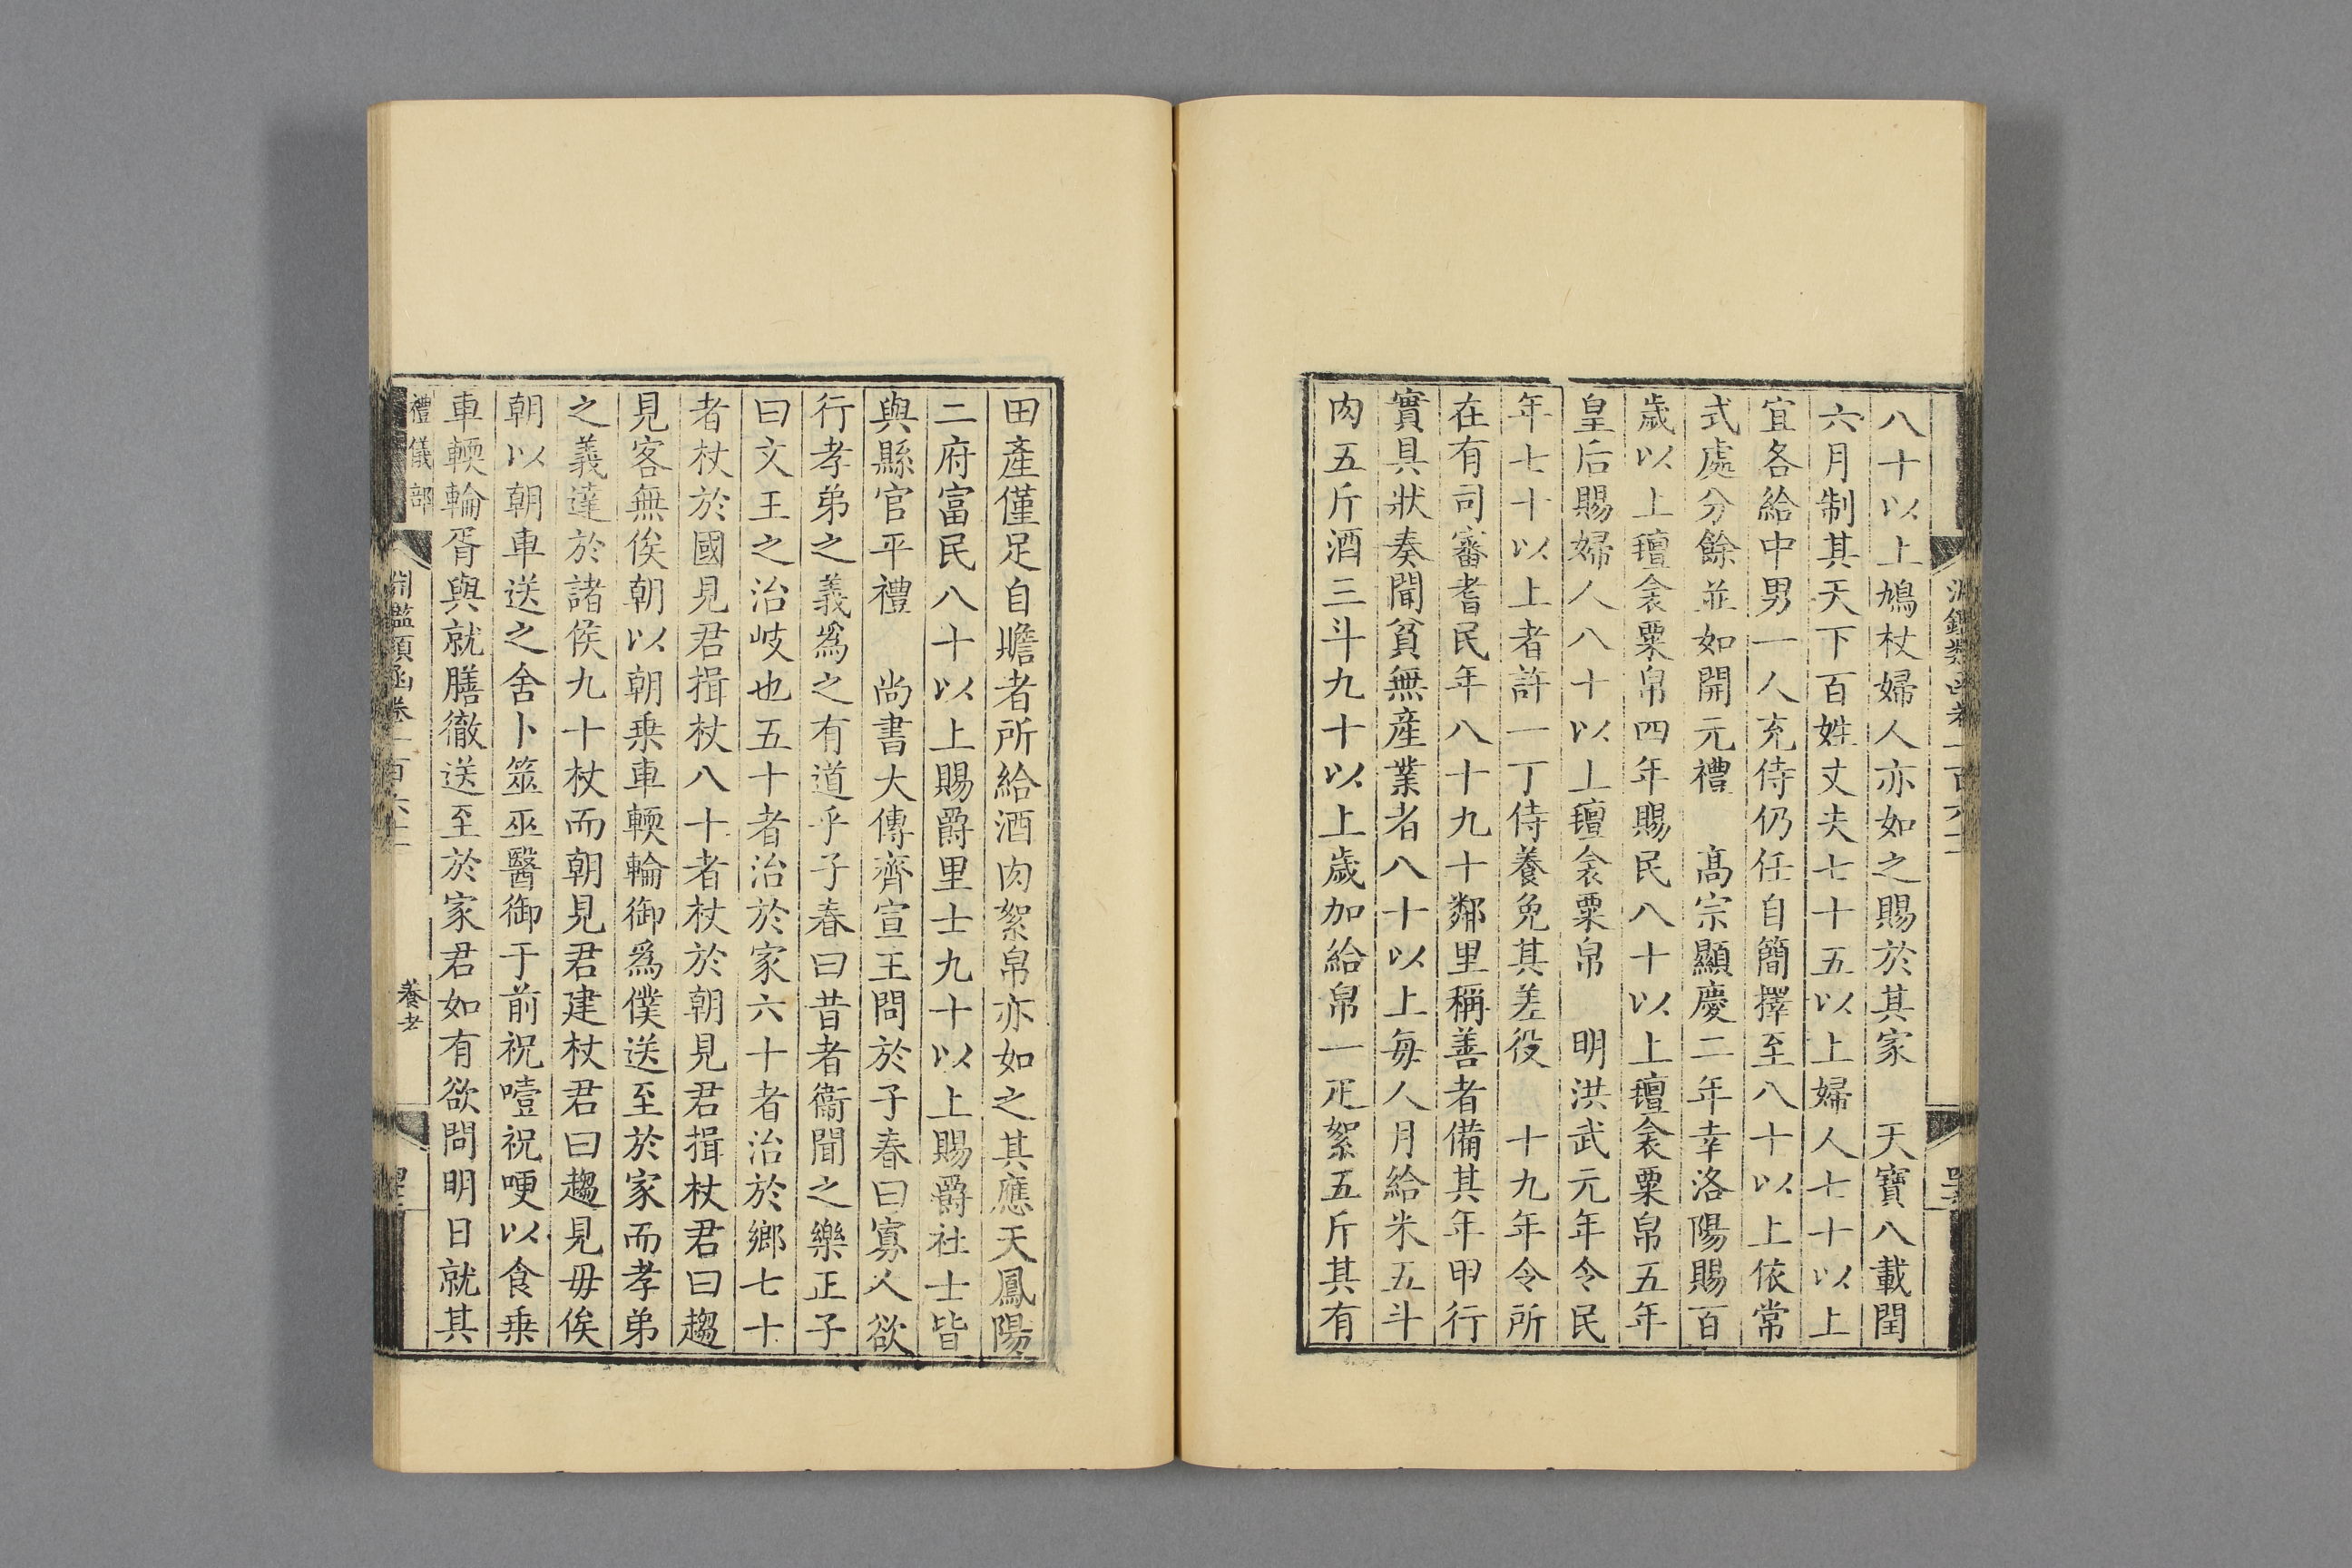 八十以上鳩杖婦人亦如之賜於其家　天寶八載閏
六月制其天下百姓丈夫七十五以上婦人七十以上
宜各給中男一人充侍仍任自簡擇至八十以上依常
式處分餘並如開元禮　高宗顯慶二年幸洛陽賜百
歲以上氊衾粟帛四年賜民八十以上氊衾粟帛五年
皇后賜婦人八十以上氊衾粟帛　明洪武元年令民
年七十以上者許一丁侍養免其差役　十九年令所
在有司審耆民年八十九十鄰里稱善者備其年甲行
實具狀奏聞貧無產業者八十以上每人月給米五斗
肉五斤酒三斗九十以上歲加給帛一疋絮五斤其有
田產僅足自贍者所給酒肉絮帛亦如之其應天鳳陽
二府富民八十以上賜爵里士九十以上賜爵社士皆
與縣官平禮　尚書大傳齊宣王問於子春曰寡人欲
行孝弟之義爲之有道乎子春曰昔者衞聞之樂正子
曰文王之治岐也五十者治於家六十者治於鄉七十
者杖於國見君揖杖八十者杖於朝見君揖杖君曰趨
見客無俟朝以朝乗車輭輪御爲僕送至於家而孝弟
之義達於諸侯九十杖而朝見君建杖君曰趨見毋俟
朝以朝車送之舍卜筮巫醫御于前祝噎祝哽以食乗
車輭輪胥與就膳徹送至於家君如有欲問明日就其
禮儀部
淵鑑類函卷一百六十
養老